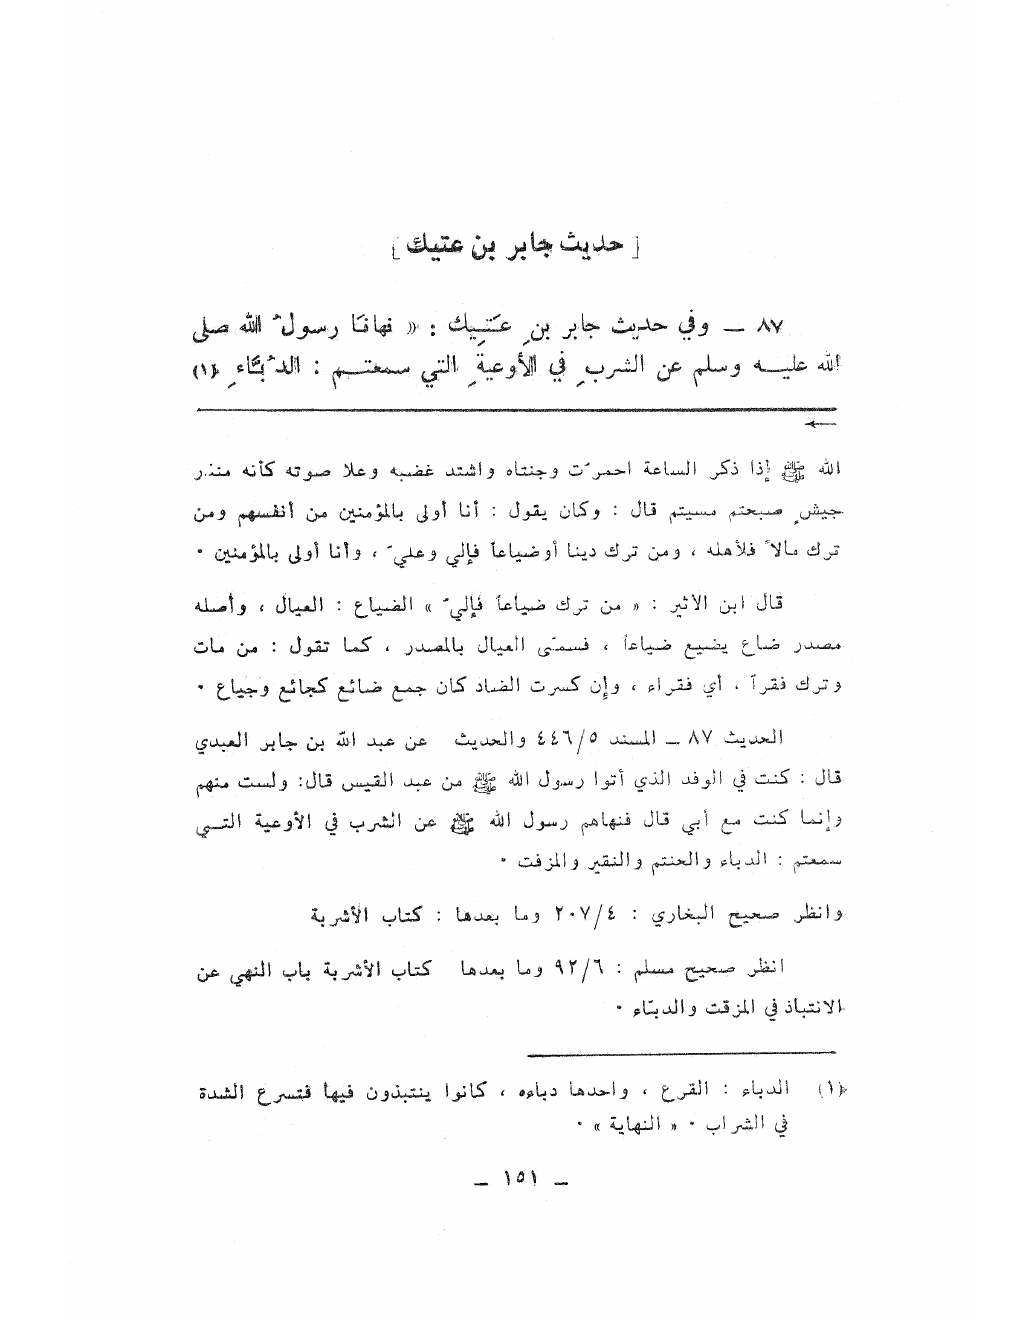 [ حديث جابر بن عتيك ]
٨٧ ـ وفي حديث جابر بنِ عَتِيك : « نهانَا رسولُ الله صلى
الله عليــه وسلم عن الشربِ في الأوعيةِ التي سمعتــم : الدُّبَّاءِ (١)
←
الله ﷺ إذا ذكر الساعة احمرّت وجنتاه واشتد غضبه وعلا صوته كأنه منذر
جيشٍ صبحتم مسيتم قال : وكان يقول : أنا أولى بالمؤمنين من أنفسهم ومن
ترك مالاً فلأهله ، ومن ترك دينا أوضياعاً فإلي وعليّ ، وأنا أولى بالمؤمنين ٠
قال ابن الاثير : « من ترك ضياعاً فإليّ » الضياع : العيال ، وأصله
مصدر ضاع يضيع ضياعاً ، فسمّى العيال بالمصدر ، كما تقول : من مات
وترك فقراً ، أي فقراء ، وإن كسرت الضاد كان جمع ضائع كجائع وجياع ٠
الحديث ٨٧ ـ المسند ٤٤٦/٥ والحديث عن عبد الله بن جابر العبدي
قال : كنت في الوفد الذي أتوا رسول الله ﷺ من عبد القيس قال: ولست منهم
وإنما كنت مع أبي قال فنهاهم رسول الله ﷺ عن الشرب في الأوعية التــي
سمعتم : الدباء والحنتم والنقير والمزفت ٠
وانظر صحيح البخاري : ٢٠٧/٤ وما بعدها : كتاب الأشربة
انظر صحيح مسلم : ٩٢/٦ وما بعدها كتاب الأشربة باب النهي عن
الانتباذ في المزقت والدبّاء ٠
(١) الدباء : القرع ، واحدها دباءه ، كانوا ينتبذون فيها فتسرع الشدة
في الشراب ٠ « النهاية » ٠
ـ ١٥١ ـ